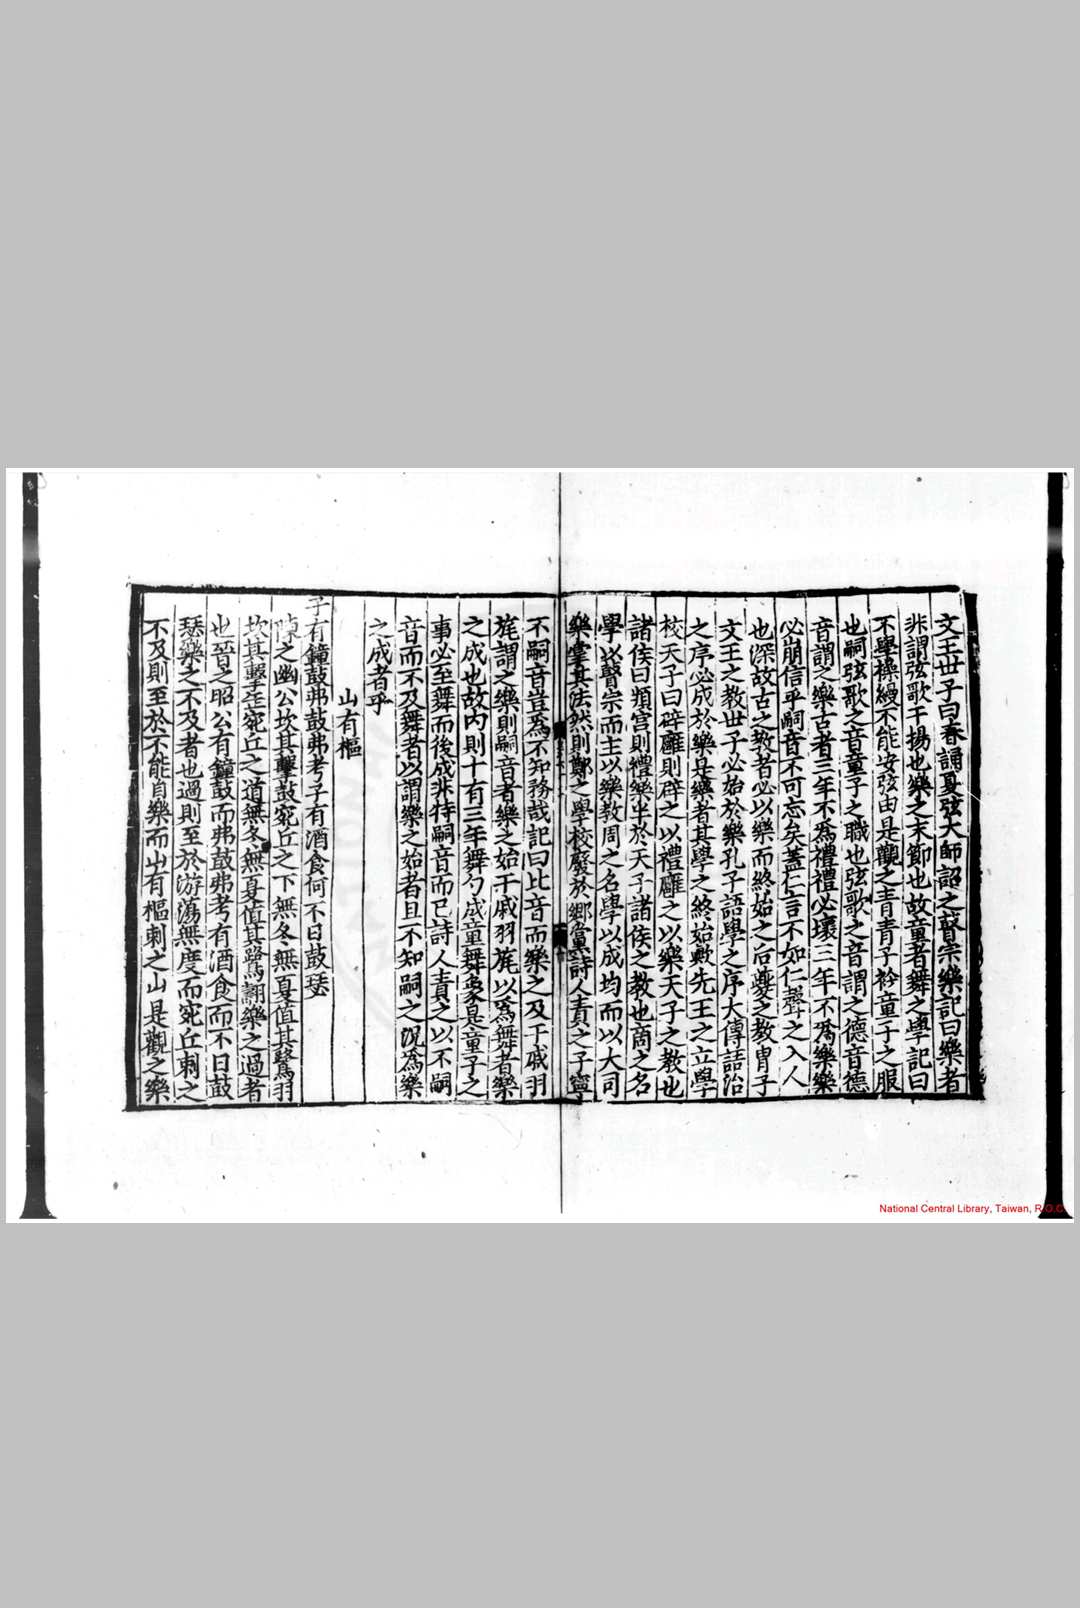 文王世子曰春誦夏弦大師詔之瞽宗樂記曰樂者
非謂弦歌干揚也樂之末節也故童者舞之學記曰
不學操縵不能安弦由是觀之青青子衿童子之服
也嗣弦歌之音童子之職也弦歌之音謂之德音德
音謂之樂古者三年不爲禮禮必壞三年不爲樂樂
必崩信乎嗣音不可忘矣蓋仁言不如仁聲之入人
也深故古之教者必以樂而終始之后夔之教胄子
文王之教世子必始於樂孔子語學之序大傳詰治
之序必成於樂是樂者其學之終始歟先王之立學
校天子曰辟廱則辟之以禮廱之以樂天子之教也
諸侯曰頖宮則禮樂半於天子諸侯之教也商之名
學以瞽宗而主以樂教周之名學以成均而以大司
樂掌其法然則鄭之學校廢於鄉黨詩人責之子寧
不嗣音豈爲不知務哉記曰比音而樂之及干戚羽
旄謂之樂則嗣音者樂之始干戚羽旄以爲舞者樂
之成也故内則十有三年舞勺成童舞象是童子之
事必至舞而後成非特嗣音而已詩人責之以不嗣
音而不及舞者以謂樂之始者且不知嗣之況爲樂
之成者乎
山有樞
子有鐘鼓弗鼓弗考子有酒食何不日鼓瑟
陳之幽公坎其擊鼓宛丘之下無冬無夏值其鷺羽
坎其擊缶宛丘之道無冬無夏值其鷺翿樂之過者
也晉之昭公有鐘鼓而弗鼓弗考有酒食而不日鼓
瑟樂之不及者也過則至於游蕩無度而宛丘刺之
不及則至於不能自樂而山有樞刺之山是觀之樂
National Central Library, Taiwan, R.O.C.